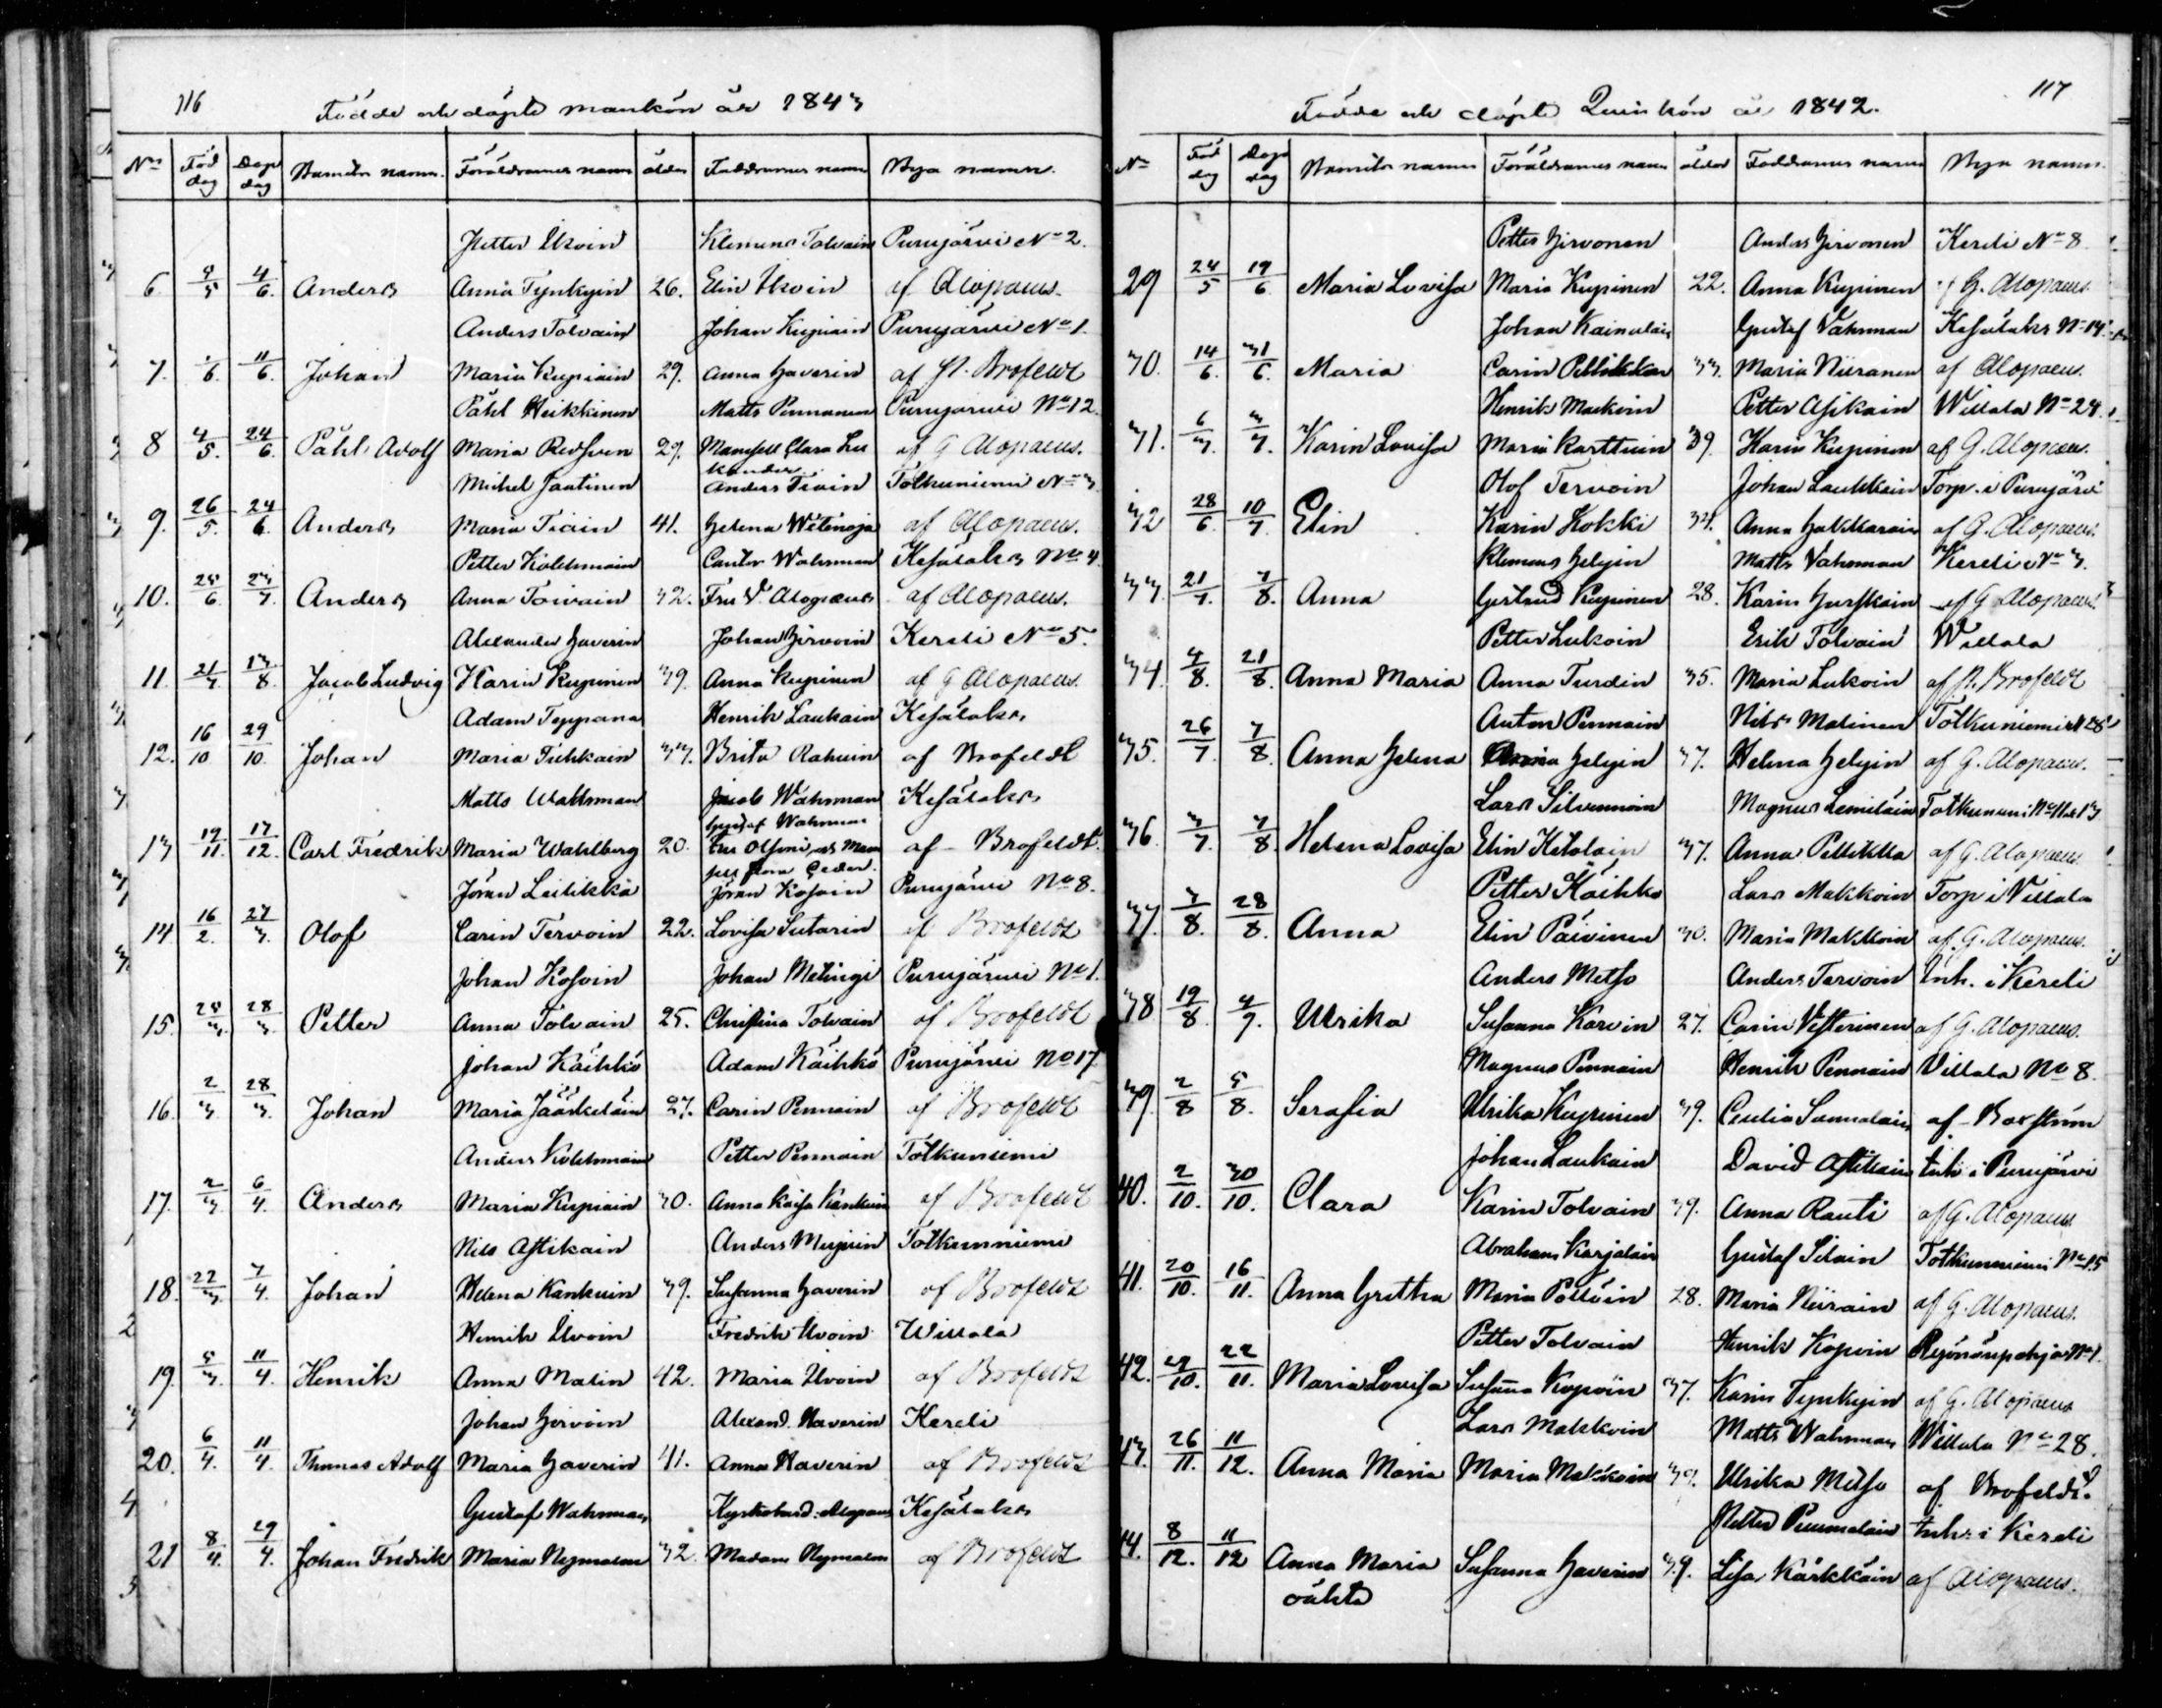 116
Födde och döpte mankön år 1843
No Föd dag Döpe dag Barnets namn Föräldrarnes namn ålder Faddrarnes namn Bya namn.
Petter Ikoin Klemens Tolvain Purujärvi No 2.
6 4/6. Anders Anna Tynkyin 26. Elin Ikoin af Alopaeus.
Anders Tolvain Johan Kupiain Purujärvi No 1.
7. 11/6. Johan Maria Kupiain 29. Anna Haverin af Brofeldt
Påhl Heikkinen Matts Pennanen Purujärvi No 12.
8 4/5. 24/6. Påhl Adolf Maria 29. Mamsell Clara af G Alopaeus.
Michel Jantinen Anders Tolkuniemi No 3
9. 26/5. 24/6. Anders Maria Tiäin 41. Helena af Alopaeus.
Petter Kolehmain Cantor Wahrman Kesälaks No 4
10. 25/6. 23/7. Anders Anna Toivain 32. Fru Alopaeus af Alopaeus.
Alexander Haverin Johan Hirvoin Kereli No 5.
11. 21/7 13/8 Jacob Ludvig Karin Kupinen 39. Anna Kupinen af G Alopaeus.
Adam Teppana Henrik Laukain Kesälaks
12. 16/10 29/10. Johan Maria Tiehkain 33. Brita Rahuin af Brofeldt
Matts Wahrman Jacob Wahrman Kesälaks
Gustaf Wahrman
13 19/11. 17/12. Carl Fredrik Maria Wahlberg 20. af Brofeldt.
Jöran Leitikkä Jöran Kosoin Purujärvi No 8.
14 16/2. 27/3. Olof Carin Tervoin 22. Lovisa Sutarin af Brofeldt
Johan Kosoin Johan Purujärvi No 1.
15. 25/3. 28/3 Petter Anna Tolvain 25. Christina Tolvain af Brofeldt
Johan Käihkö Adam Käihkö Purujärvi No 17
16. 2/3. 28/3. Johan Maria Jääskeläin 27. Carin Pennain af Brofeldt
Anders Kolehmain Petter Pennain Tolkuniemi
17. 2/3 6/4. Anders Maria Kupiain 30. Anna Kaisa af Brofeldt
Nils Astikain Anders Tolkunniemi
18. 22/3 3/4. Johan Helena Kankuin 39. Susanna Haverin af Brofeldt
Henrik Ikoin Fredrik Ikoin Willala
19. 5/3. 11/4. Henrik Anna Matin 42. Maria Ikoin af Brofeldt
Johan Hirvoin Alexand. Haverin Kereli
20. 6/4. 11/4. Thomas Adolf Maria Haverin 41. Anna Haverin af Brofeldt
Gustaf Wahrman Kyrkoherd. Alopaeus Kesälaks
21 8/4. 29/4. Johan Fredrik Maria Nymalm 32. Madam Nymalm af Brofeldt
117
Födde och döpte Quinkön år 1842.
No Föd dag Döpe dag Barnets namn Föräldrarnes namn ålder Faddrarnes namn Bya namn.
Petter Hirvonen Anders Hirvonen Kereli No 8
29 24/5 19/6 Maria Lovisa Maria Kupinen 22. Anna Kupinen af G. Alopaeus.
Johan Kainulain Gustaf Vahrman Kesälaks No 14
30. 14/6. 31/6. Maria Carin Pellikka 33. Maria Niiranen af Alopaeus.
Henrik Petter Asikain Willala No 24.
31. 6/3. 3/7. Karin Lovisa Maria Karttuin 39. Karin Kupinen af G. Alopaeus.
Olof Tervoin Johan Laukkain Torp. i Purujärvi
32 28/6. 10/7. Elin Karin Kokki 34. Anna Hakkarain af G. Alopaeus.
Klemens Helyin Matts Vahrman Kereli No 3.
33. 21/7. 7/8. Anna Gertrud Kupinen 28. Karin Hurskain af G Alopaeus.
Petter Lukoin Erik Tolvain Willala
34. 4/8. 21/8. Anna Maria Anna Turdin 35. Maria Lukoin af Brofeldt
Anton Pennain Nils Matinen Tolkuniemi N 28
35. 26/7. 7/8. Anna Helena Anna Helyin 37. Helena Helyin af G. Alopaeus.
Lars Silvennoin Magnus Lemiläin Tolkuniemi No 11
36. 3/7. 7/8. Helena Lovisa Elin Ketolain 37. Anna Pellikka af G. Alopaeus
Petter Käihkö Lars Makkoin Torp i Villala
37. 7/8. 28/8. Anna Elin Päivinen 30. Maria Makkoin af G. Alopaeus.
Anders Metso Anders Tervoin Inh. i Kereli
38 19/8. 4/9. Ulrika Susanna Karvin 27. Carin Vesterinen af G. Alopaeus.
Magnus Pennain Henrik Pennain Villala No 8.
39. 2/8 5/8. Serafia Ulrika Kupinen 39. Cecilia Sammalain af Boxström
Johan Laukain David Astikain inh i Purujärvi
40. 2/10. 30/10. Clara Karin Tolvain 39. Anna Rauti af G. Alopaeus
Abraham Karjalain Gustaf Silain Tolkunniemi No 15
41. 20/10. 16/11. Anna Gretha Maria Pöllöin 28. Maria Niirain af G. Alopaeus.
Petter Tolvain Henrik Kopoin No 1.
42. 29/10. 22/11. Maria Lovisa Susana Kopoin 37. Karin Tynkyin af G. Alopaeus
Lars Makkoin Matts Wahrman Willala No 28.
43. 26/11. 11/12. Anna Maria Maria Makkoin 39. Ulrika Metso af Brofeldt.
Petter Pummalain Inh. i Kereli
44. 8/12. 11/12 Anna Maria Susanna Haverin 39. Lisa Kärkkäin af Alopaeus.
oäkta